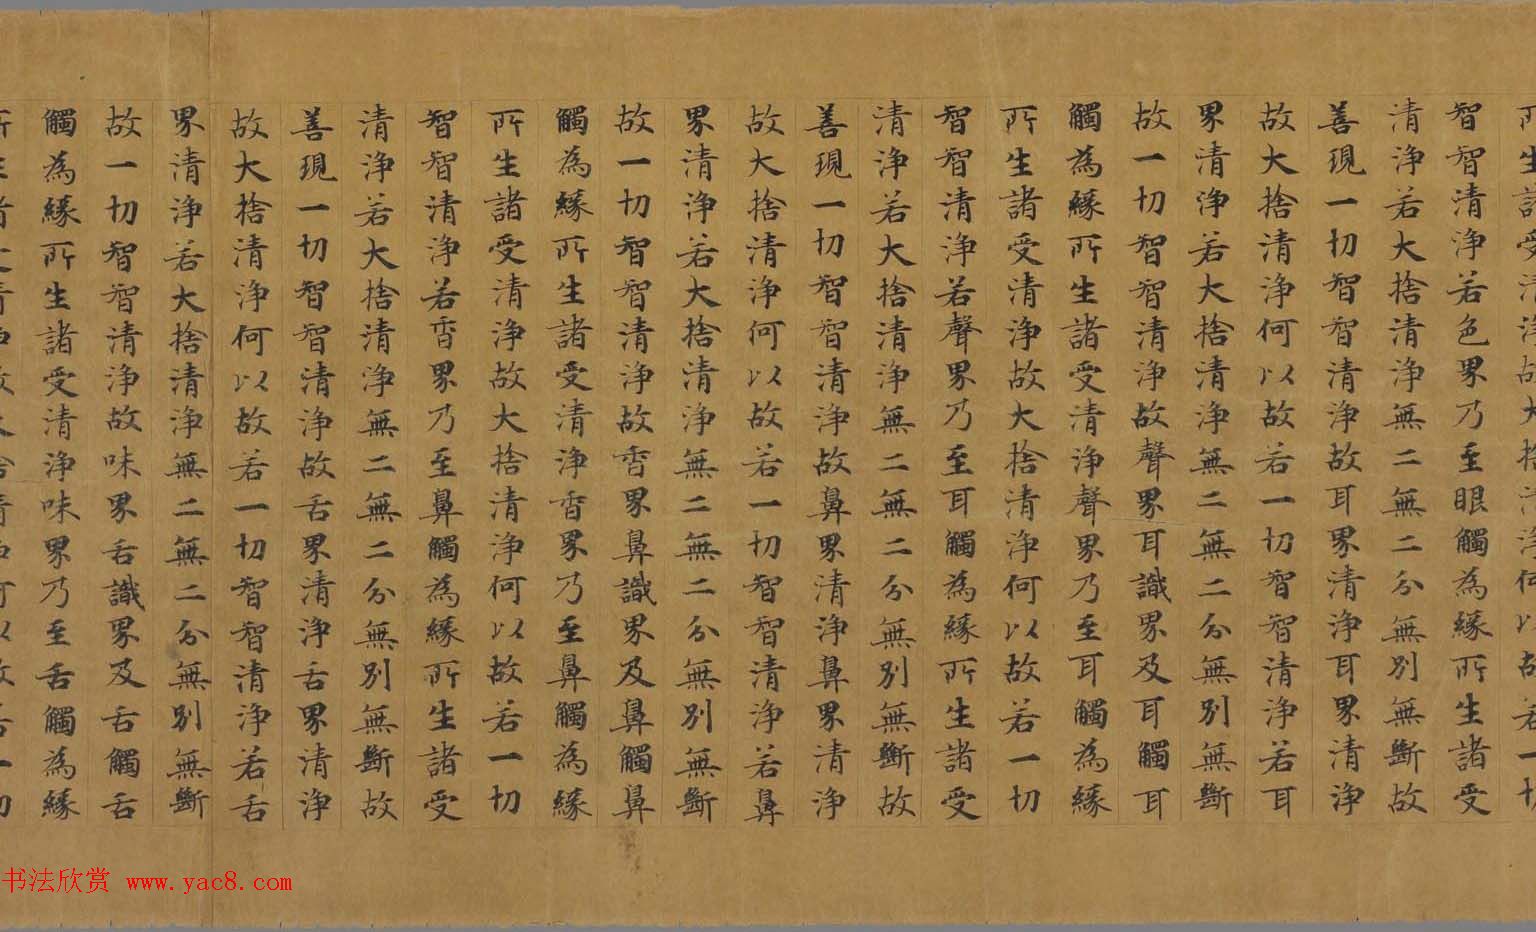 所生諸受清淨故大捨清淨何以故若一切
智智清淨若色界乃至眼觸為緣所生諸受
清淨若大捨清淨無二無二分無別無斷故
善現一切智智清淨故耳界清淨耳界清淨
故大捨清淨何以故若一切智智清淨若耳
界清淨若大捨清淨無二無二分無別無斷
故一切智智清淨故聲界耳識界及耳觸耳
觸為緣所生諸受清淨聲界乃至耳觸為緣
所生諸受清淨故大捨清淨何以故若一切
智智清淨若聲界乃至耳觸為緣所生諸受
清淨若大捨清淨無二無二分無別無斷故
善現一切智智清淨故鼻界清淨鼻界清淨
故大捨清淨何以故若一切智智清淨若鼻
界清淨若大捨清淨無二無二分無別無斷
故一切智智清淨故香界鼻識界及鼻觸鼻
觸為緣所生諸受清淨香界乃至鼻觸為緣
所生諸受清淨故大捨清淨何以故若一切
智智清淨若香界乃至鼻觸為緣所生諸受
清淨若大捨清淨無二無二分無別無斷故
善現一切智智清淨故舌界清淨舌界清淨
故大捨清淨何以故若一切智智清淨若舌
界清淨若大捨清淨無二無二分無別無斷
故一切智智清淨故味界舌識界及舌觸舌
觸為緣所生諸受清淨味界乃至舌觸為緣
所生諸受清淨故大捨清淨何以故若一切
书法欣赏 www.yac8.com